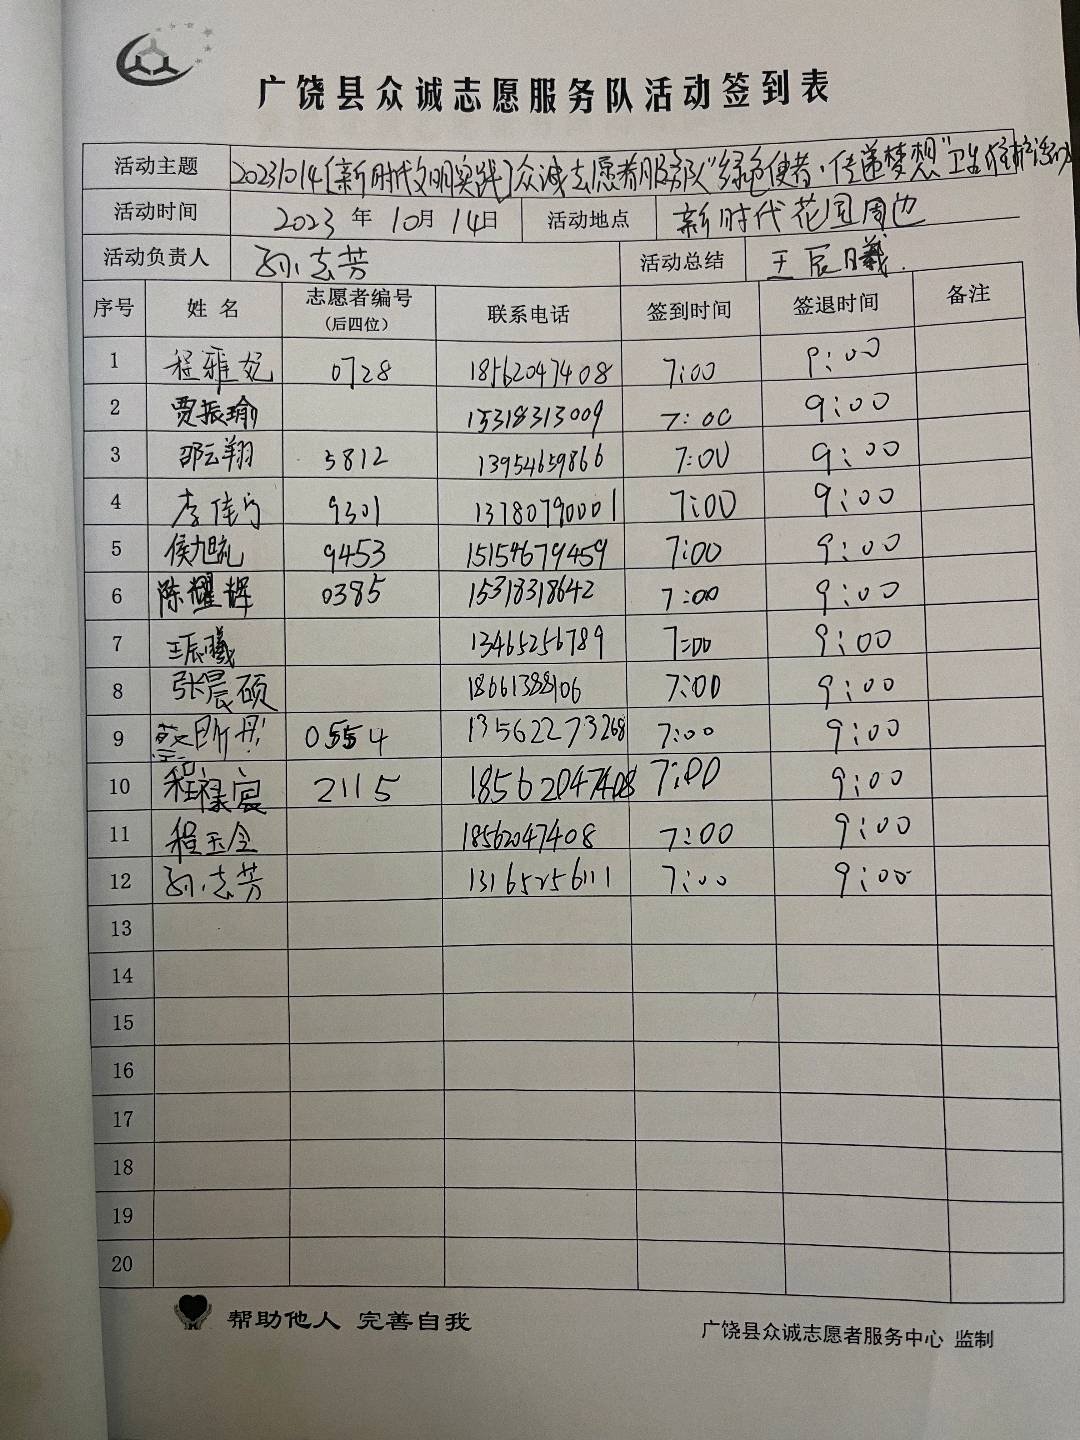 广饶县众诚志愿服务队活动签到表
活动主题 20231014[新时代文明实践]众诚志愿者服务队"绿色使者·传递梦想"卫生维护活动
活动时间 2023年10月14日 活动地点 新时代花园周边
活动负责人 孙志芳 活动总结 王辰曦.
序号 姓名 志愿者编号(后四位) 联系电话 签到时间 签退时间 备注
1 程雅妃 0728 18562047408 7:00 9:00
2 贾振瑜 15318313009 7:00 9:00
3 邵云翔 5812 13954659866 7:00 9:00
4 李佳宁 9301 13780790001 7:00 9:00
5 侯旭 9453 15154679459 7:00 9:00
6 陈耀辉 0385 15318318642 7:00 9:00
7 王辰曦 13465256789 7:00 9:00
8 张晨硕 18661388106 7:00 9:00
9 0554 13562273268 7:00 9:00
10 程禄宸 2115 18562047408 7:00 9:00
11 程玉全 18562047408 7:00 9:00
12 孙志芳 13165256111 7:00 9:00
13
14
15
16
17
18
19
20
帮助他人 完善自我
广饶县众诚志愿者服务中心 监制